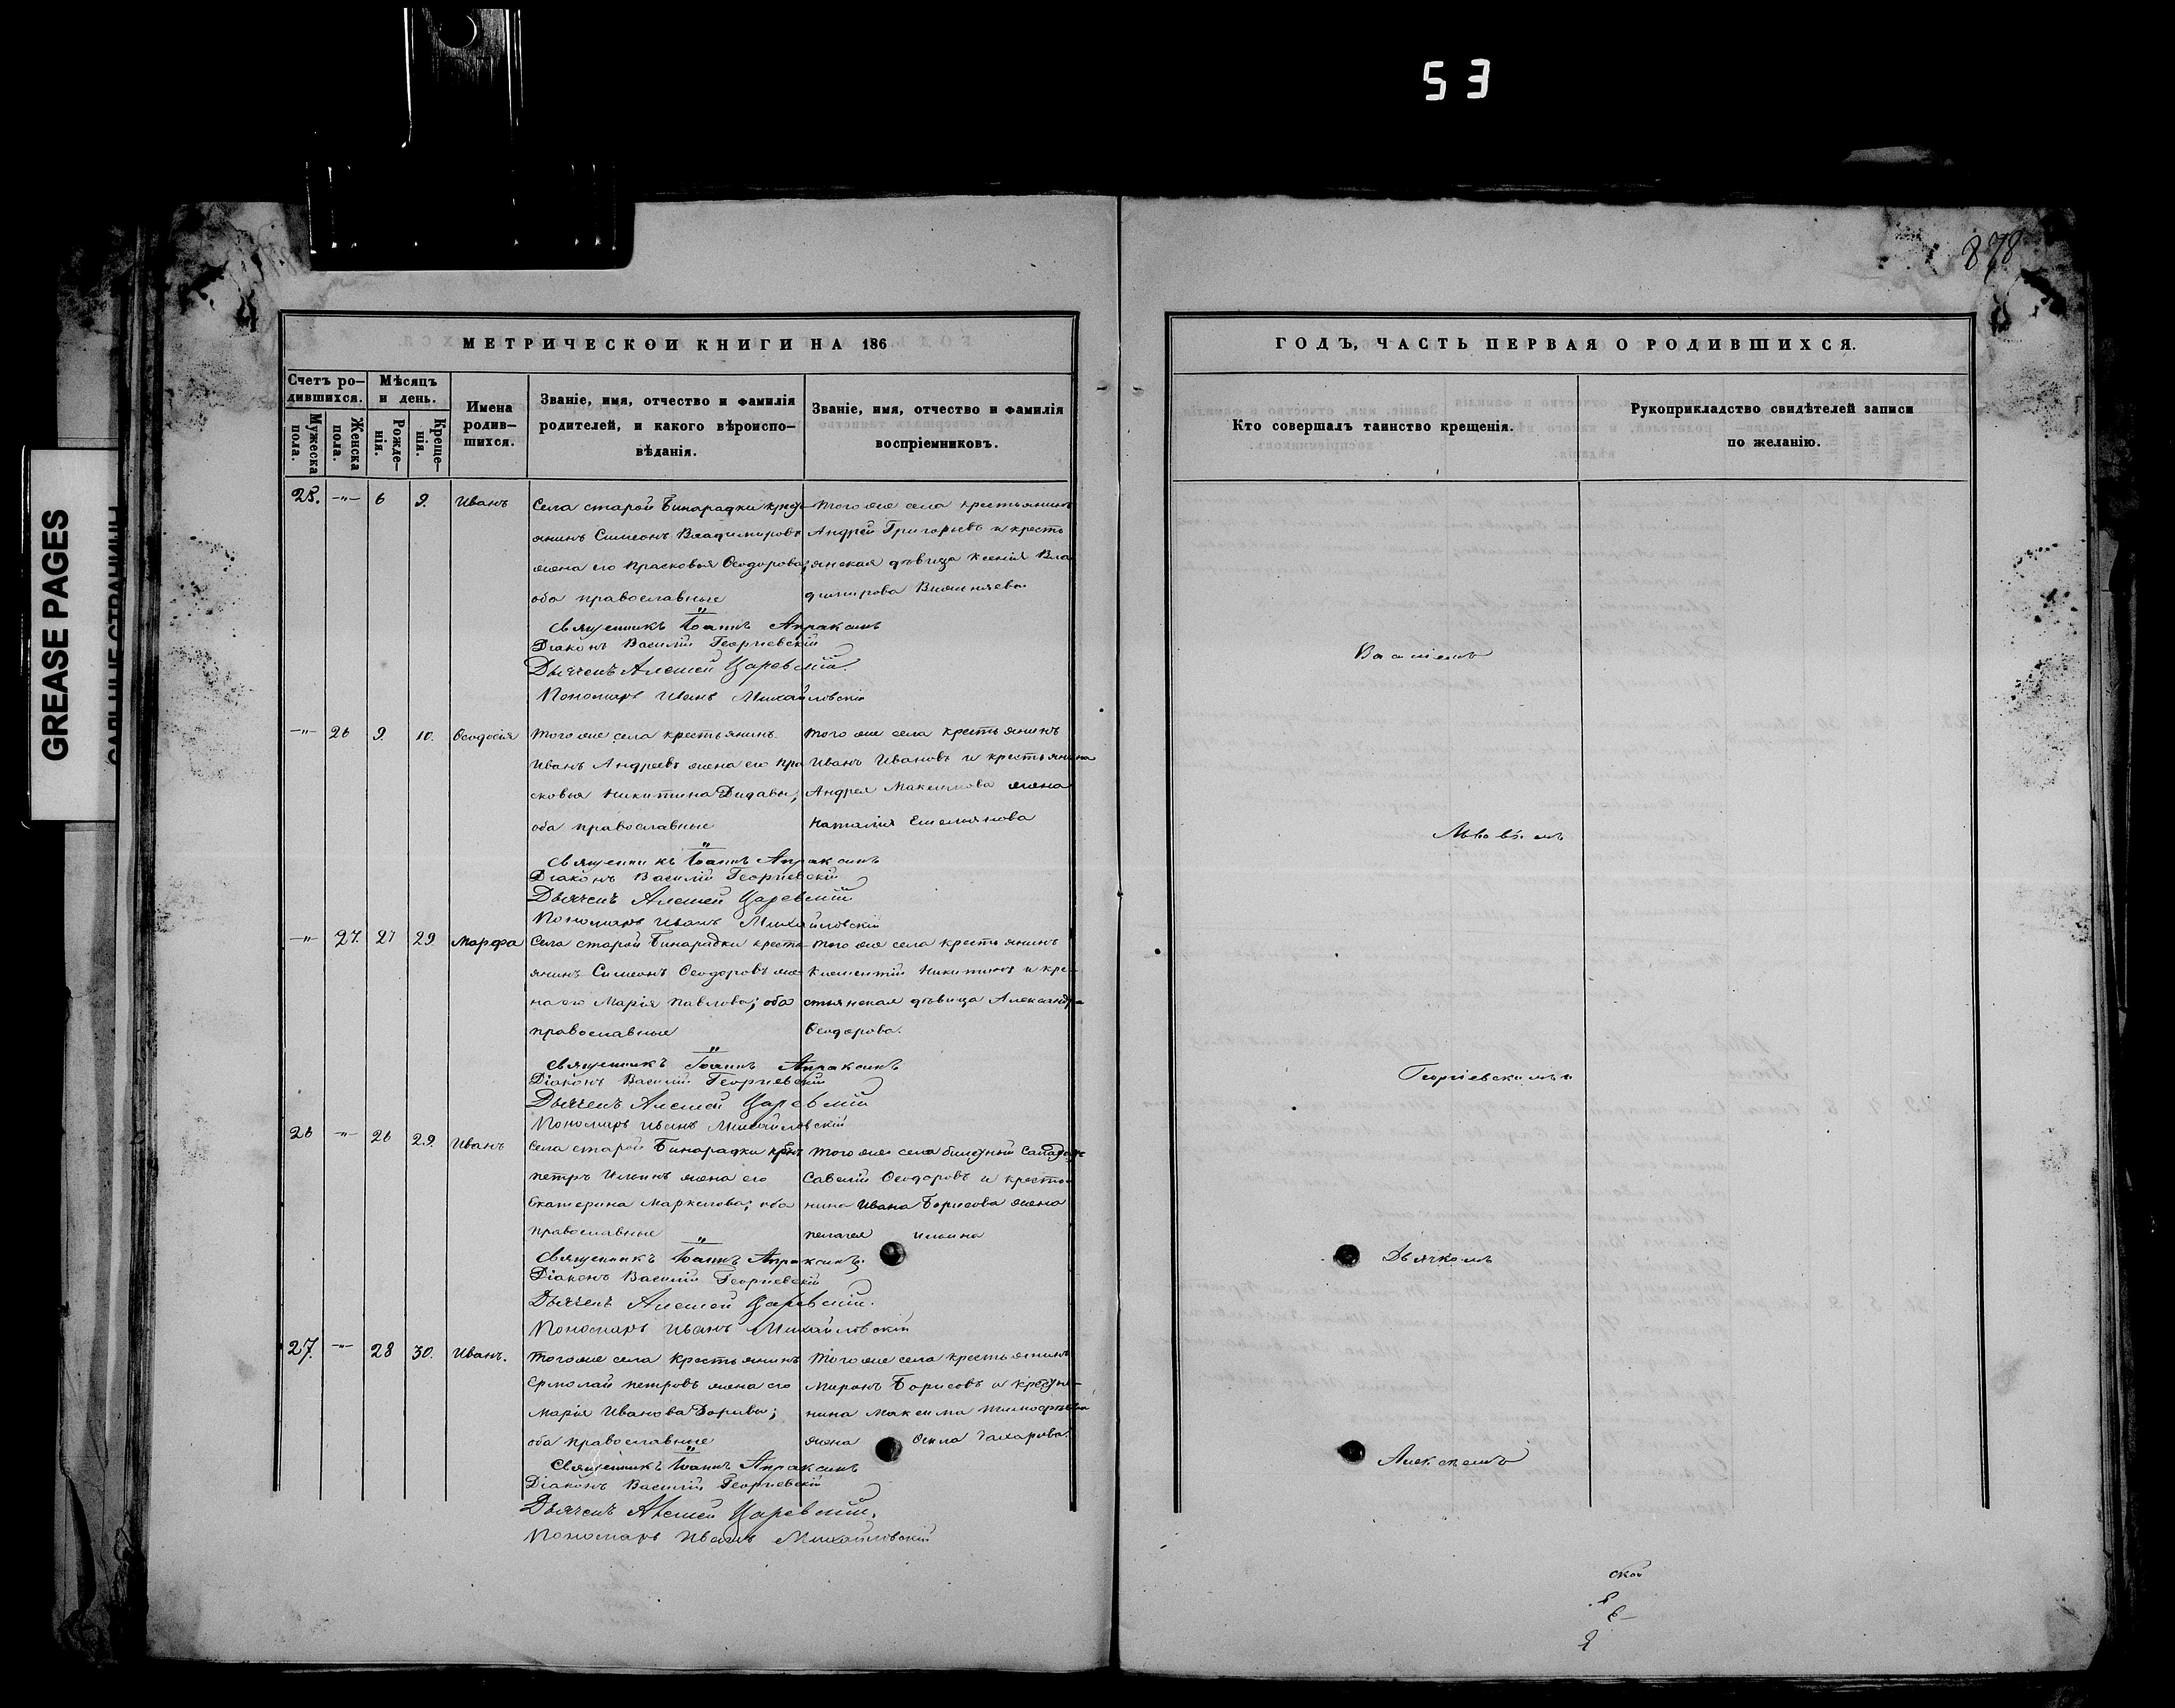 53
GREASE PAGES
878
МЕТРИЧЕСКОЙ КНИГИ НА 186
Счетъ ро-
дившихся.
Мужеска
пола.
Женска
пола.
Мѣсяцъ
и день.
Рожде-
нія.
Креще-
нія.
Имена
родив-
шихся.
Званіе, имя, отчество и фамилія
родителей, и какого вѣроиспо-
вѣданія.
Званіе, имя, отчество и фамилія
воспріемниковъ.
ГОДЪ, ЧАСТЬ ПЕРВАЯ О РОДИВШИХСЯ.
Кто совершалъ таинство крещенія.
Рукоприкладство свидѣтелей записи
по желанію.
25. -"- 6 9. Иванъ
Села старой Бинарадки крест-
янинъ Симеонъ Владимировъ
жена его Прасковья Ѳеодорова;
оба православные
Того же села крестьянинъ
Андрей Григорьевъ и кресть
янская дѣвица Ксенія Вла
димирова
Священникъ Іоаннъ Апраксинъ
Діаконъ Василій Георгіевскій
Дьячекъ Алексей Царевскій.
Пономарь Иванъ Михайловскій
Василіемъ
-"- 26 9. 10. Ѳеодосія
Того же села крестьянинъ
Иванъ Андреевъ жена его Пра
сковья Никитина
оба православные
Того же села крестьянинъ
Иванъ Ивановъ и крестьянина
Андрея Максимова жена
Наталия Емельянова
Священникъ Іоаннъ Апраксинъ
Діаконъ Василій Георгіевскій
Дьячекъ Алексей Царевскій
Пономарь Иванъ Михайловскій
-"- 27. 27 29 Марфа
Села старой Бинарадки кресть
янинъ Симеонъ Ѳеодоровъ же
на его Марія Павлова; оба
православные
Того же села крестьянинъ
Климентій Никитинъ и кре-
стьянская дѣвица Александра
Ѳеодорова.
Священникъ Іоаннъ Апраксинъ
Діаконъ Василій Георгіевскій
Дьячекъ Алексей Царевскій
Пономарь Иванъ Михайловскій
Георгіевскимъ и
26 -"- 26 29. Иванъ
Села старой Бинарадки
Петръ Ильинъ жена его
Екатерина Маркелова; оба
православные
Того же села билетный
Савелій Ѳеодоровъ и крестья
нина Ивана Борисова жена
Пелагея Ильина
Священникъ Іоаннъ Апраксинъ.
Діаконъ Василій Георгіевскій
Дьячекъ Алексей Царевскій.
Пономарь Иванъ Михайловскій
Дьячкомъ
27. -"- 28 30. Иванъ.
Того же села крестьянинъ
Ермолай Петровъ жена его
Марія Иванова
оба православные
Того же села крестьянинъ
Миронъ Борисовъ и крестья-
нина Максима Тимофѣева
жена Захарова.
Священникъ Іоаннъ Апраксинъ
Діаконъ Василій Георгіевскій
Дьячекъ Алексей Царевскій.
Пономарь Иванъ Михайловскій
Алексѣемъ
ской